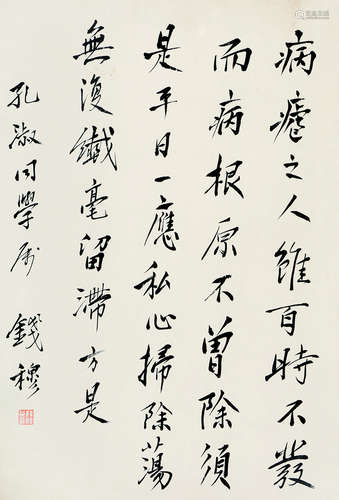 病瘧之人雖有時不發
而病根原不曾除須
是平日一應私心掃除蕩
無復纖毫留滯方是
孔淑同學屬
錢穆